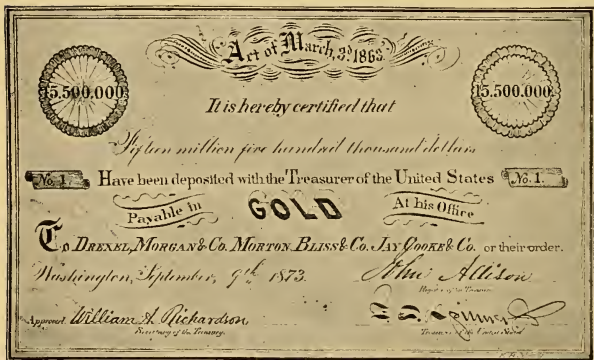 Act of March, 3d. 1863.
15.500.000 15.500.000
It is hereby certified that
Fifteen million five hundred thousand dollars
No. 1. Have been deposited with the Treasurer of the United States No. 1.
Payable in GOLD At his Office
To DREXEL, MORGAN & Co. MORTON BLISS & Co. JAY COOKE & Co. or their order.
Washington, September, 9th. 1873. John Allison
Register of the Treasury
Approved. William A. Richardson
Secretary of the Treasury. Treasurer of the United States